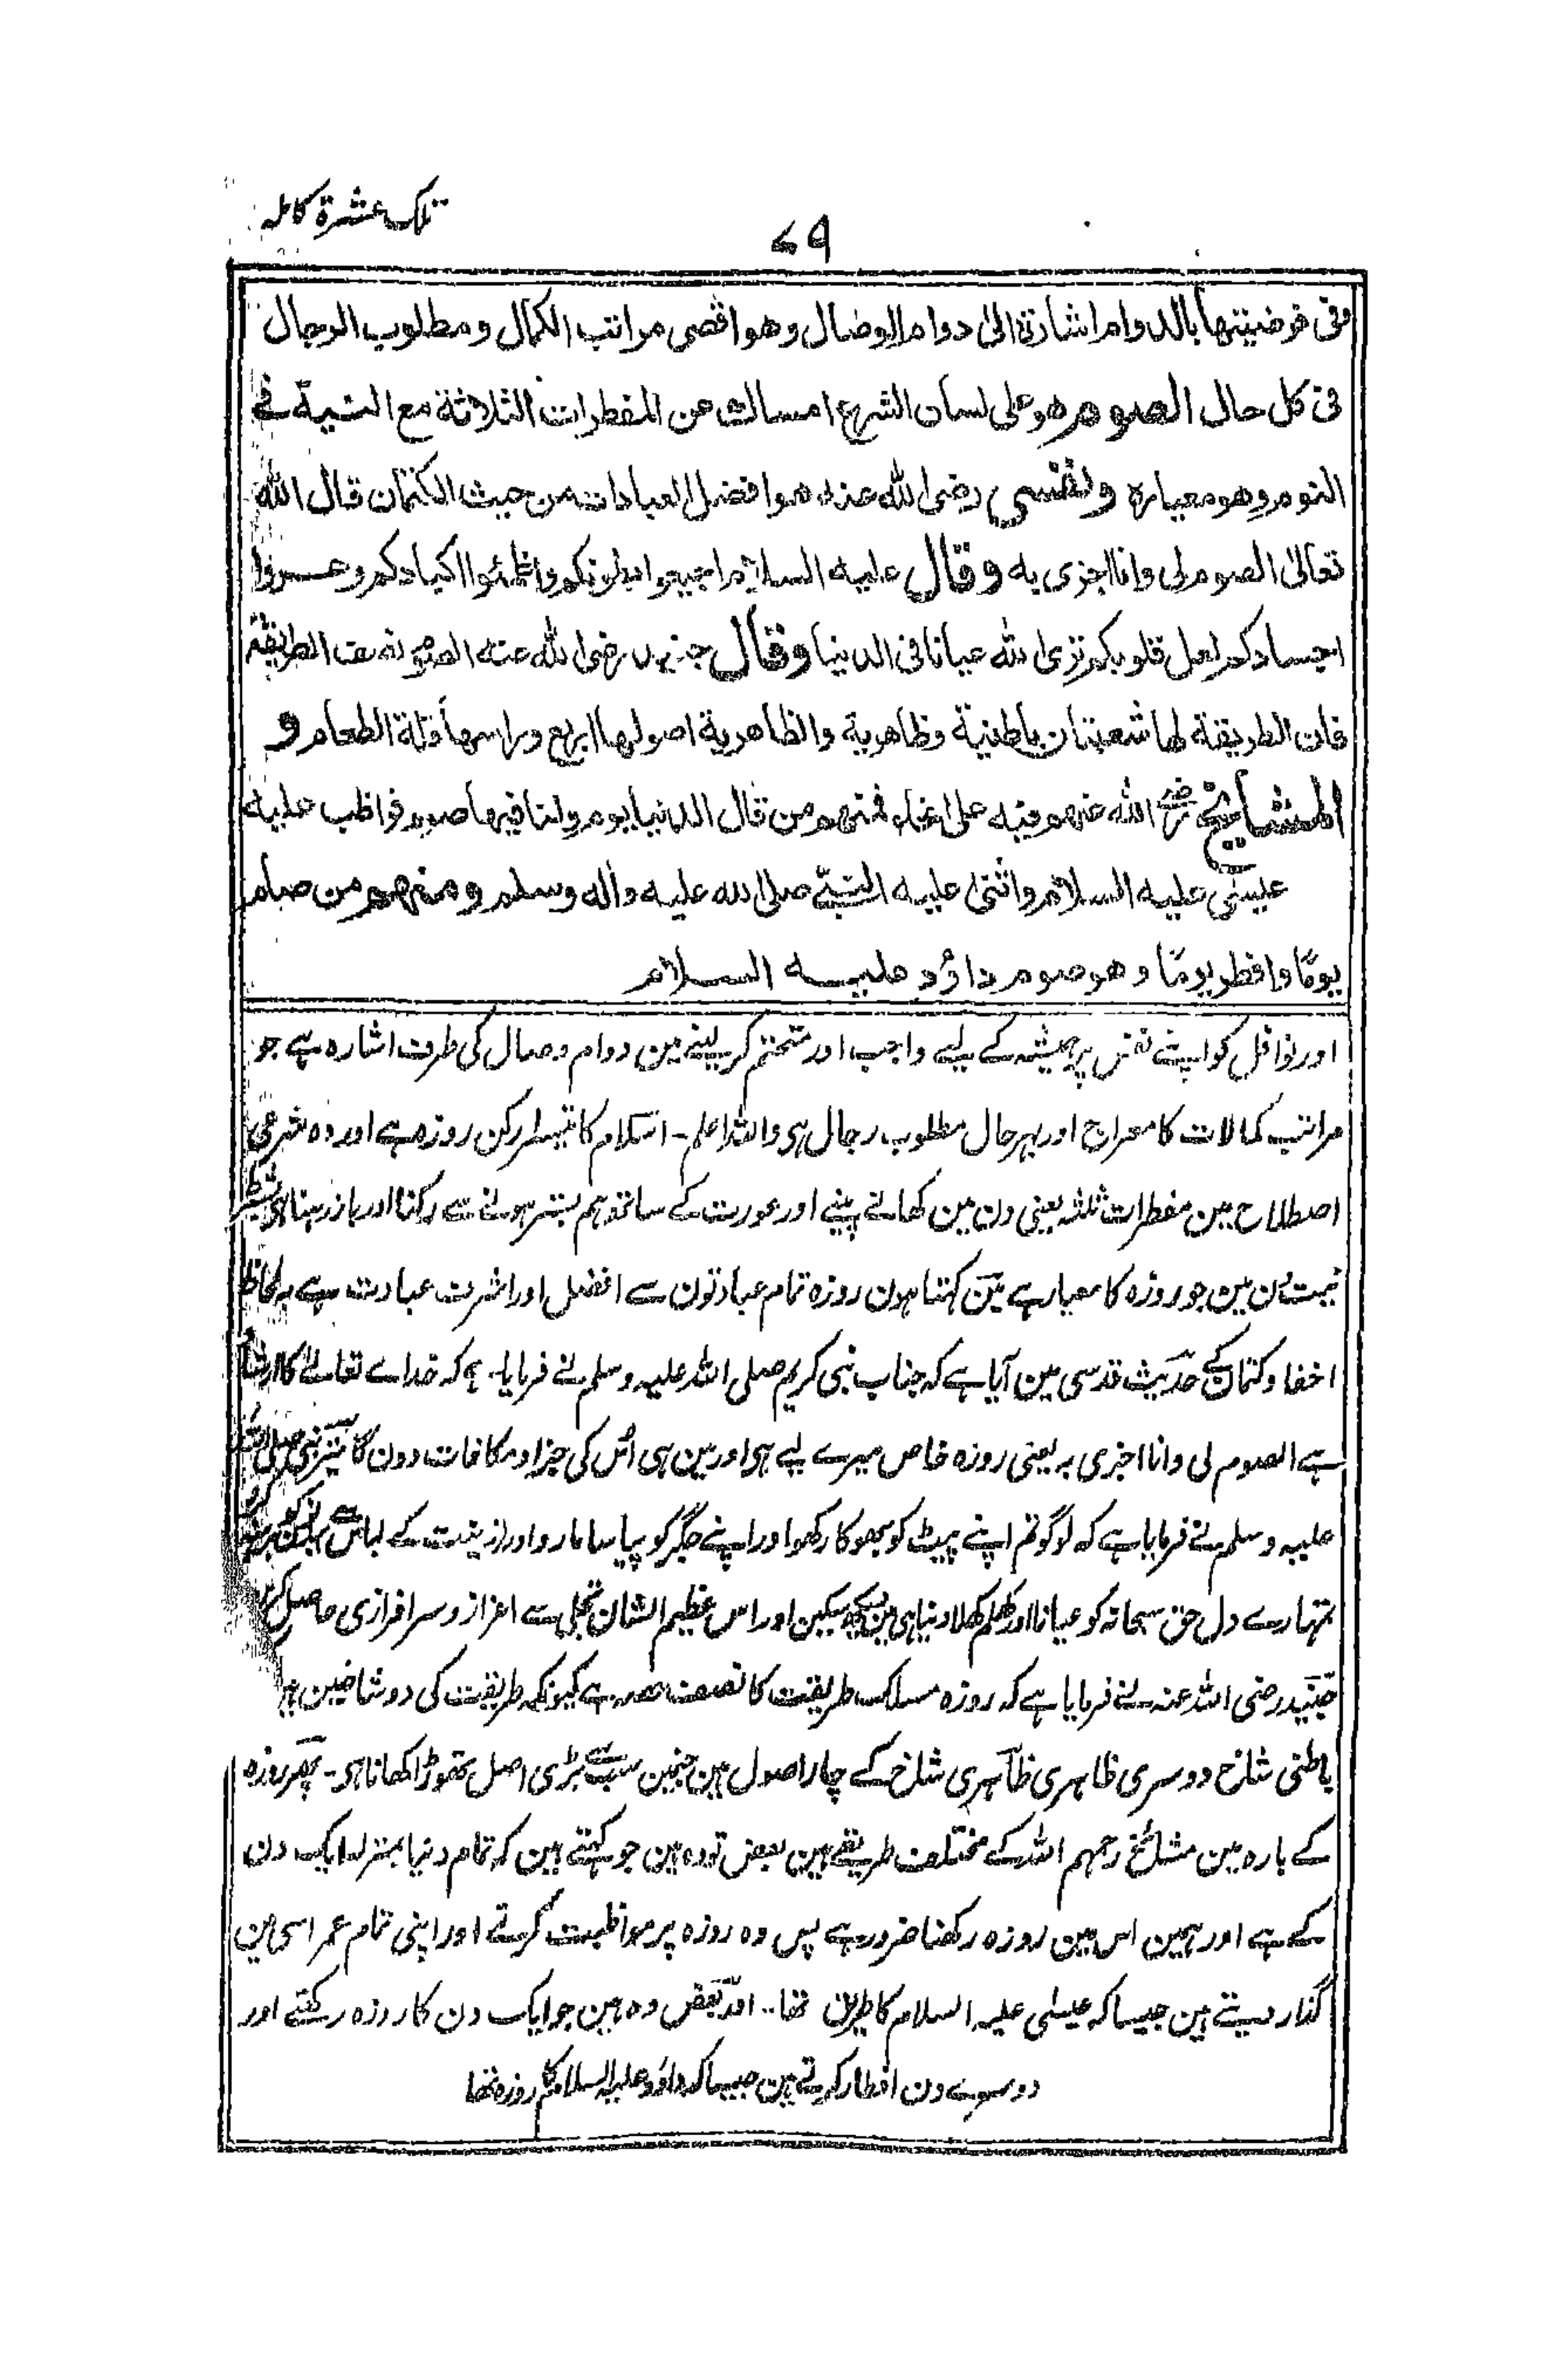 تلک عشرۃ کاملہ
۷۹
وفی فرضیتها بالدوام اشارة الی دوام الوصال وهو اقصی مراتب الکمال ومطلوب الرجال
فی کل حال الصوم هو علی لسان الشرع امساك عن المفطرات الثلاثة مع النیة فی
الیوم وهو معیاره ولنفسی رضی الله عنه هو افضل العبادات من حیث الکتمان قال الله
تعالیٰ الصوم لی وانا اجزی به وقال علیه السلام اجیعوا بطونکم واظمئوا اکبادکم وعروا
اجسادکم لعل قلوبکم تری الله عیانا فی الدنیا وقال جنید رضی الله عنه الصوم نصف الطریقة
فان الطریقة لها شعبتان باطنیة وظاهریة والظاهریة اصولها اربع وراسها قلة الطعام و
المشایخ رضی الله عنهم فیه علی انحاء فمنهم من قال الدنیا یوم ولنا فیها صوم فواظب علیه
عیسٰی علیه السلام واثنی علیه النبیّ صلی الله علیه واٰله وسلم ومنهم من صام
یومًا وافطر یومًا وهو صوم داؤد علیه السلام
اور نوافل کو اپنے نفس پر ہمیشہ کے لیے واجب اور متحتم کر لینے مین دوام وصال کی طرف اشارہ ہے جو
مراتب کمالات کا معراج اور بہر حال مطلوب رجال ہی واللہ اعلم ۔ اسلام کا تیسرا رکن روزہ ہے اور وہ شرعی
اصطلاح مین مفطرات ثلثہ یعنی دن مین کھانے پینے اور عورت کے ساتھ ہم بستر ہونے سے رکنا اور باز رہنا ہی بشرط
نیت دن مین جو روزہ کا معیار ہے مین کہتا ہون روزہ تمام عبادتون سے افضل اور اشرف عبادت ہے بلحاظ
اخفا و کتمان کے حدیث قدسی مین آیا ہے کہ جناب نبی کریم صلی اللہ علیہ وسلم نے فرمایا ہے کہ خداے تعالےٰ کا ارشاد
ہے الصوم لی وانا اجزی بہ یعنی روزہ خاص میرے لیے ہی اور مین ہی اس کی جزا و مکافات دون گا نیز نبی صلی اللہ
علیہ وسلم نے فرمایا ہے کہ لوگو تم اپنے پیٹ کو بھوکا رکھو اور اپنے جگر کو پیاسا مارو اور زینت کے لباس سے
تمہارے دل حق سبحانہ کو عیانا اور کھلم کھلا دنیا ہی مین دیکھ سکین اور اس عظیم الشان تجلی سے اعزاز و سرافرازی حاصل کرین
جنید رضی اللہ عنہ نے فرمایا ہے کہ روزہ مسلک طریقت کا نصف حصہ ہے کیونکہ طریقت کی دو شاخین ہین
باطنی شاخ دوسری ظاہری ظاہری شاخ کے چار اصول ہین جنمین سب سے بڑی اصل تھوڑا کھانا ہی ۔ پھر روزہ
کے بارہ مین مشائخ رحمہم اللہ کے مختلف طریقے ہین بعض تو وہ ہین جو کہتے ہین کہ تمام دنیا بمنزلہ ایک دن
کے ہے اور ہمین اس مین روزہ رکھنا ضرور ہے پس وہ روزہ پر مواظبت کرتے اور اپنی تمام عمر اسی مین
گذار دیتے ہین جیسا کہ عیسٰی علیہ السلام کا طریق تھا ۔ اور بعض وہ ہین جو ایک دن کا روزہ رکھتے اور
دوسرے دن افطار کرتے ہین جیسا کہ داؤد علیہ السلام کا روزہ تھا